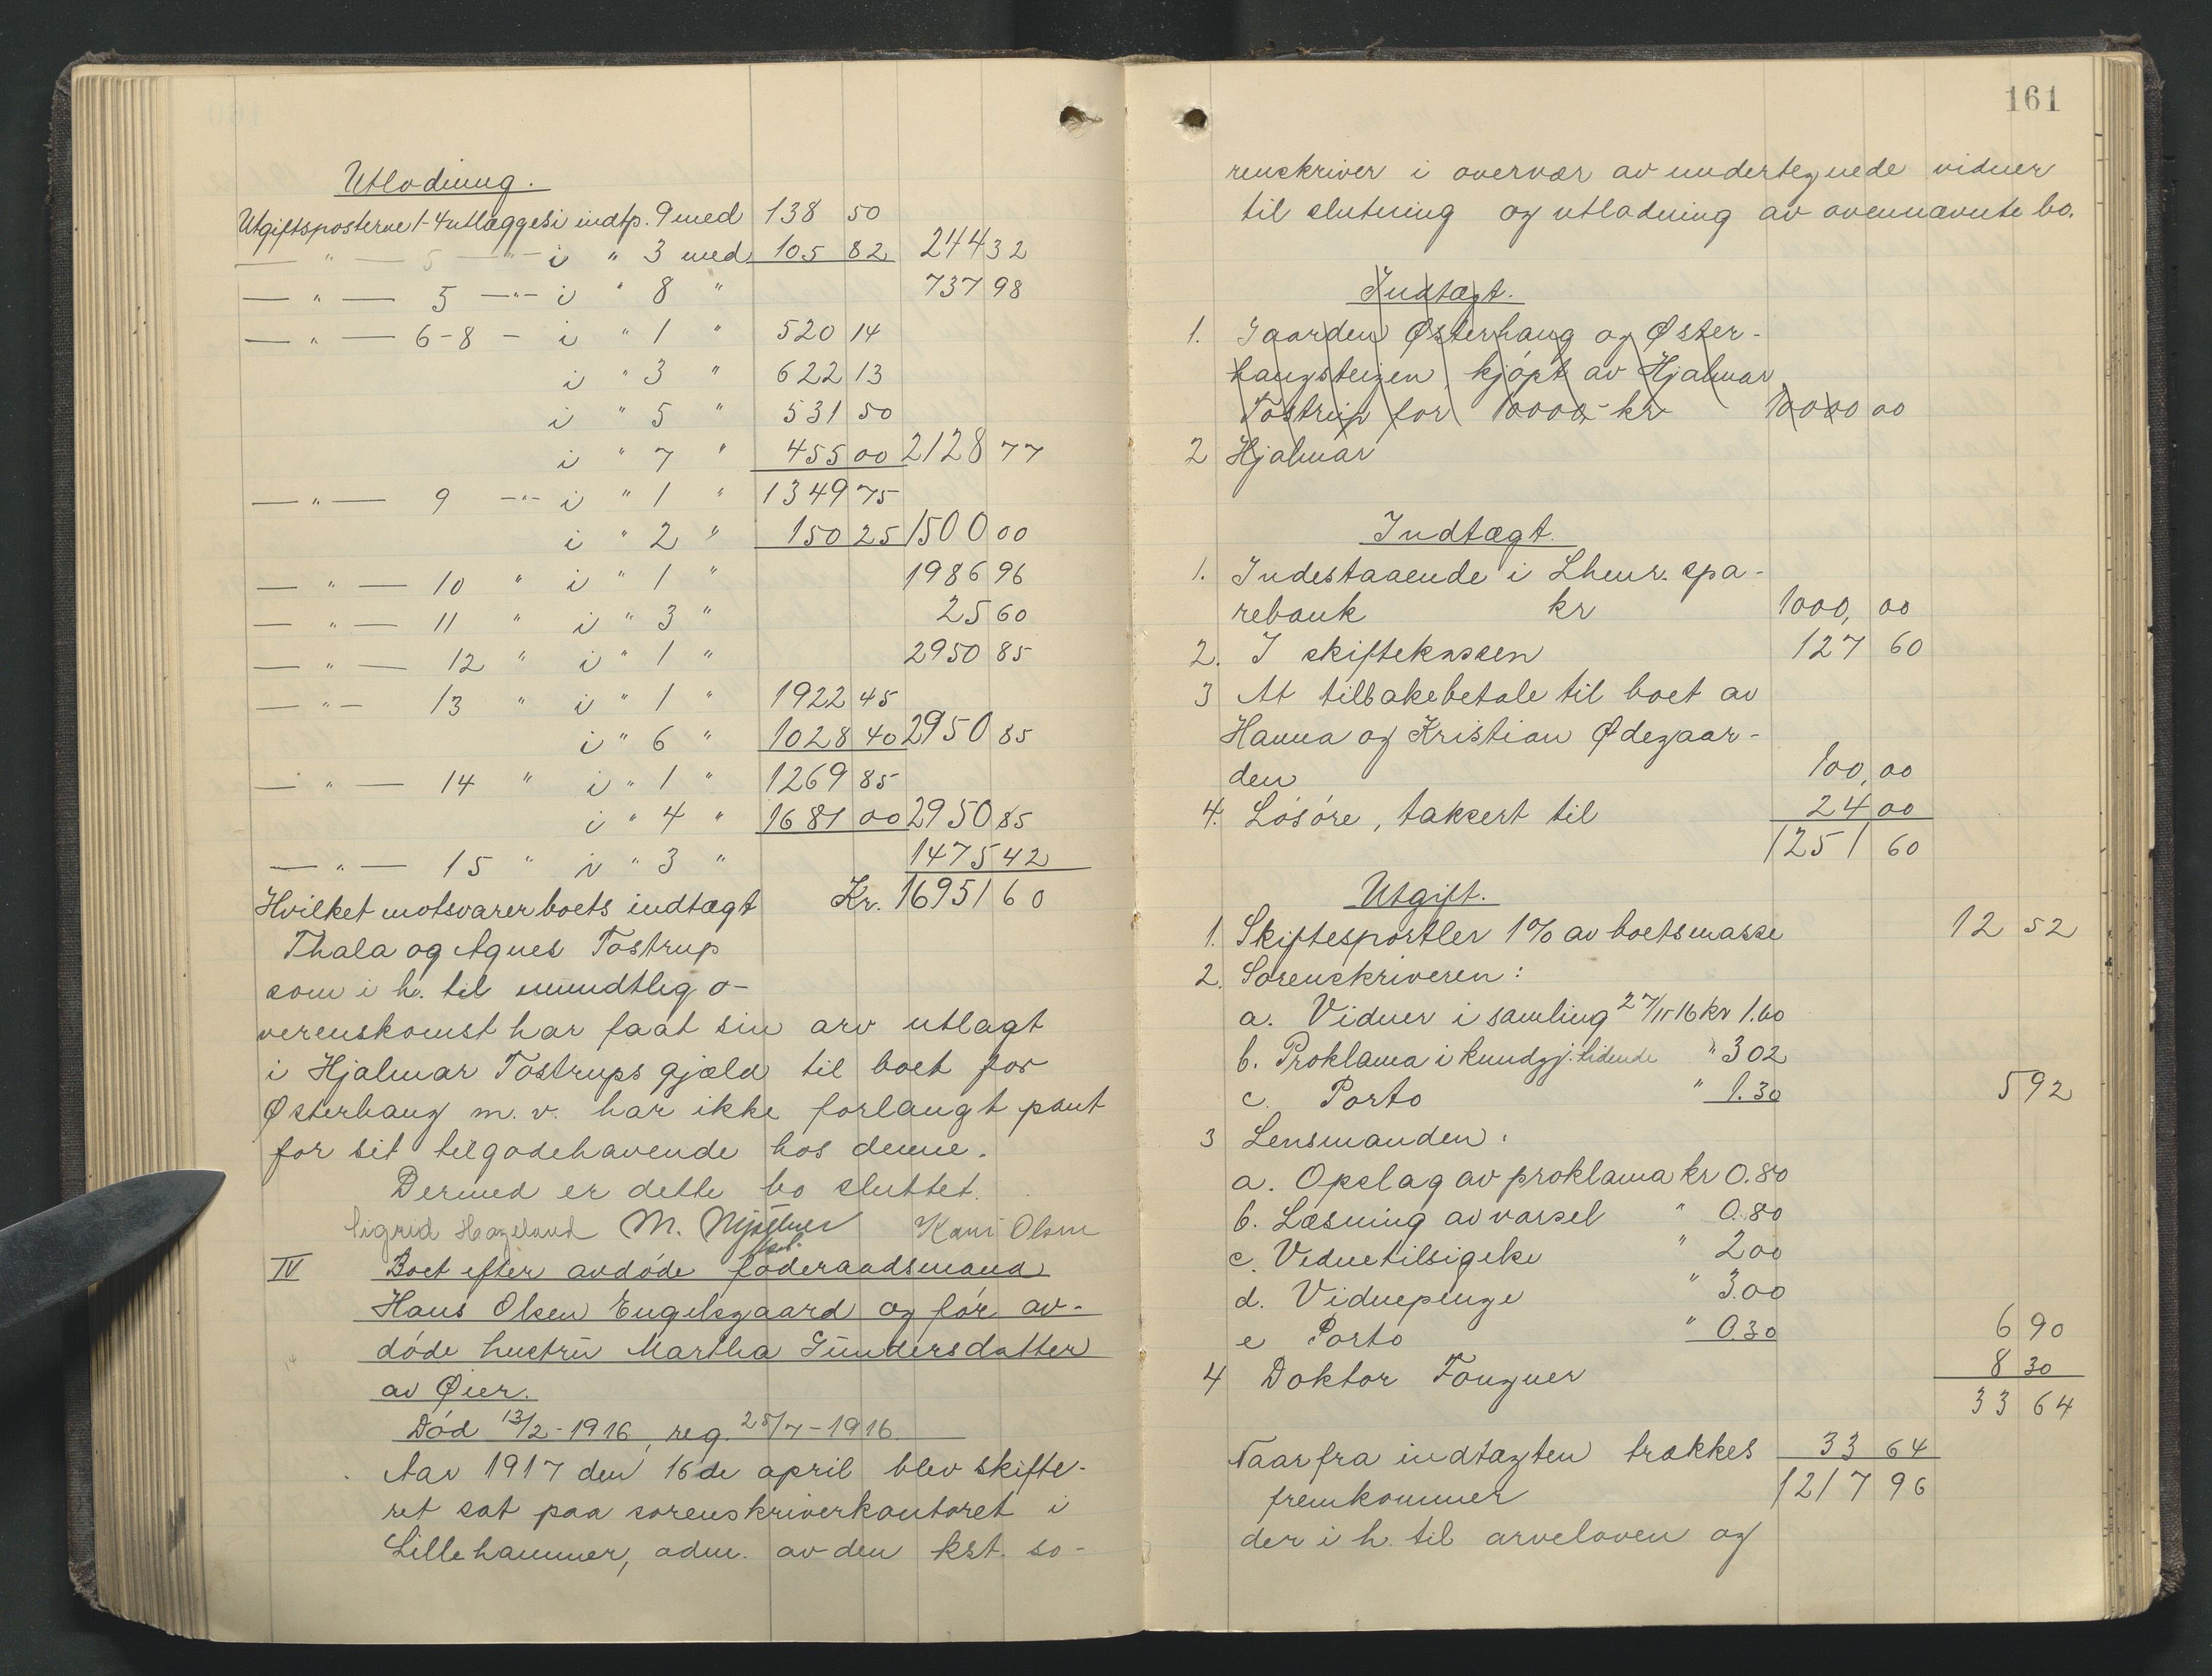 Utlodning.
Utgiftsposterne 1-4 utlægges i indtp. 9 med 138 50
— " — 5 —"— i " 3 med 105 82 244 32
— " — 5 —"— i " 8 " 737 98
— " — 6-8 — i " 1 " 520 14
i " 3 " 622 13
i " 5 " 531 50
i " 7 " 455 00 2128 77
— " — 9 —"— i " 1 " 1349 75
i " 2 " 150 25 1500 00
— " — 10 " i " 1 " 1986 96
— " — 11 " i " 3 " 25 60
— " — 12 " i " 1 " 2950 85
— " — 13 " i " 1 " 1922 45
i " 6 " 1028 40 2950 85
— " — 14 " i " 1 " 1269 85
i " 4 " 1681 00 2950 85
— " — 15 " i " 3 " 1475 42
Hvilket motsvarer boets indtægt Kr. 16951 60
Thala og Agnes Tostrup
som i h. til mundtlig o-
verenskomst har faat sin arv utlagt
i Hjalmar Tostrups gjæld til boet for
Østerhaug m. v. har ikke forlangt pant
for sit tilgodehavende hos denne.
Dermed er dette bo sluttet.
Sigrid Hageland M. Kani Olsen
IV Boet efter avdøde føderaadsmand
Hans Olsen Engelsgaard og før av-
døde hustru Martha Gundersdatter
av Øier.
Død 13/2-1916, reg. 25/7-1916.
Aar 1917 den 16de april blev skifte-
ret sat paa sorenskriverkontoret i
Lillehammer, adm. av den kst. so-
161
renskriver i overvær av undertegnede vidner
til slutning og utlodning av ovennævnte bo.
Indtægt.
1. Gaarden Østerhaug og Øster-
haugsteigen, kjøpt av Hjalmar
Tostrup for 10000,- kr 10000 00
2 Hjalmar
Indtægt.
1. Indestaaende i Lhmr. spa-
rebank kr 1000, 00
2. I skiftekassen 127 60
3 At tilbakebetale til boet av
Hanna og Kristian Ødegaar-
den 100, 00
4. Løsøre, taksert til 24 00
1251 60
Utgift.
1. Skiftesportler 1% av boetsmasse 12 52
2. Sorenskriveren:
a. Vidner i samling 27/11-16 kr 1.60
b. Proklama i kundgj. tidende " 3 02
c. Porto " 1.30 5 92
3 Lensmanden:
a. Opslag av proklama kr 0.80
b. Læsning av varsel " 0.80
c. Vidnetilsigelse " 2 00
d. Vidnepenge " 3.00
e Porto " 0 30 6 90
4 Doktor Fougner 8 30
33 64
Naar fra indtægten trækkes 33 64
fremkommer 1217 96
der i h. til arveloven og